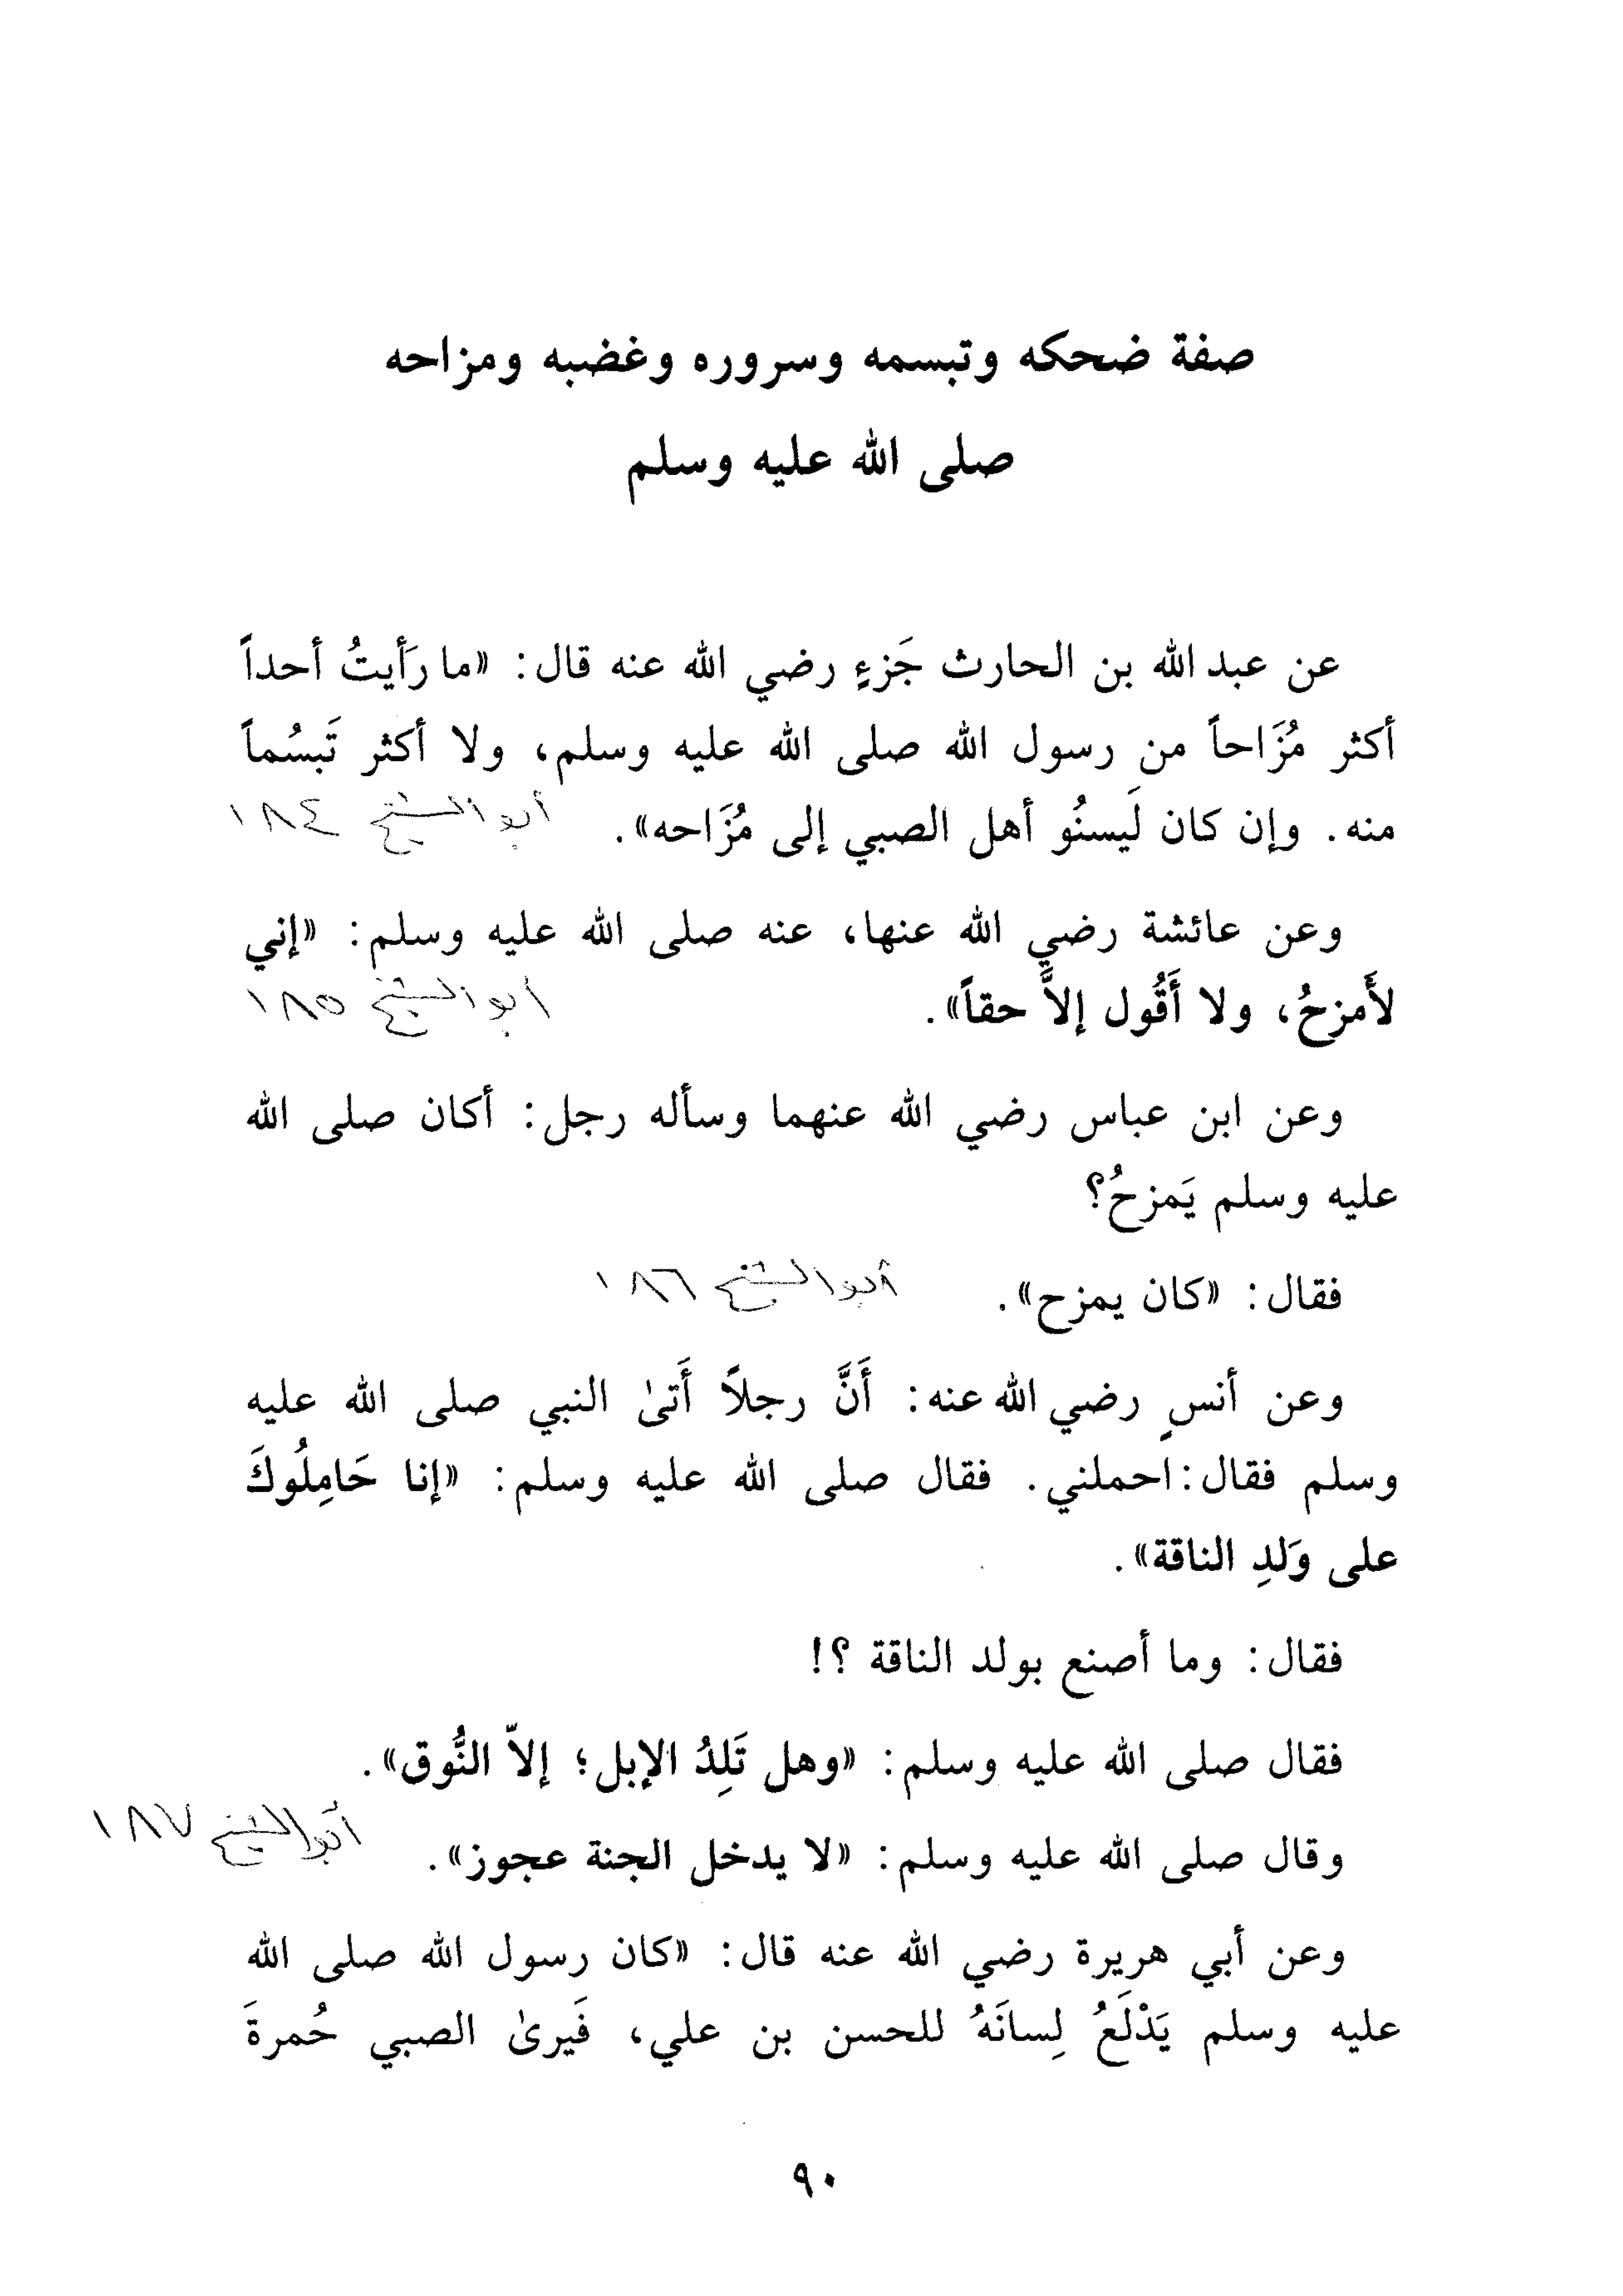 صفة ضحكه وتبسمه وسروره وغضبه ومزاحه
صلى الله عليه وسلم
عن عبد الله بن الحارث جَزءٍ رضي الله عنه قال: «ما رَأَيتُ أحداً
أكثر مُزَاحاً من رسول الله صلى الله عليه وسلم، ولا أكثر تَبسُماً
منه. وإن كان لَيسنُو أهل الصبي إلى مُزَاحه». أبو الشيخ ١٨٤
وعن عائشة رضي الله عنها، عنه صلى الله عليه وسلم: «إني
لأَمزحُ، ولا أَقُول إلاَّ حقاً». أبو الشيخ ١٨٥
وعن ابن عباس رضي الله عنهما وسأله رجل: أكان صلى الله
عليه وسلم يَمزحُ؟
فقال: «كان يمزح». أبو الشيخ ١٨٦
وعن أنسٍ رضي الله عنه: أَنَّ رجلاً أَتىٰ النبي صلى الله عليه
وسلم فقال: احملني. فقال صلى الله عليه وسلم: «إنا حَامِلُوكَ
على وَلدِ الناقة».
فقال: وما أصنع بولد الناقة ؟!
فقال صلى الله عليه وسلم: «وهل تَلِدُ الإبل؛ إلاّ النُّوق».
أبو الشيخ ١٨٧
وقال صلى الله عليه وسلم: «لا يدخل الجنة عجوز».
وعن أبي هريرة رضي الله عنه قال: «كان رسول الله صلى الله
عليه وسلم يَدْلَعُ لِسانَهُ للحسن بن علي، فَيرىٰ الصبي حُمرةَ
٩٠